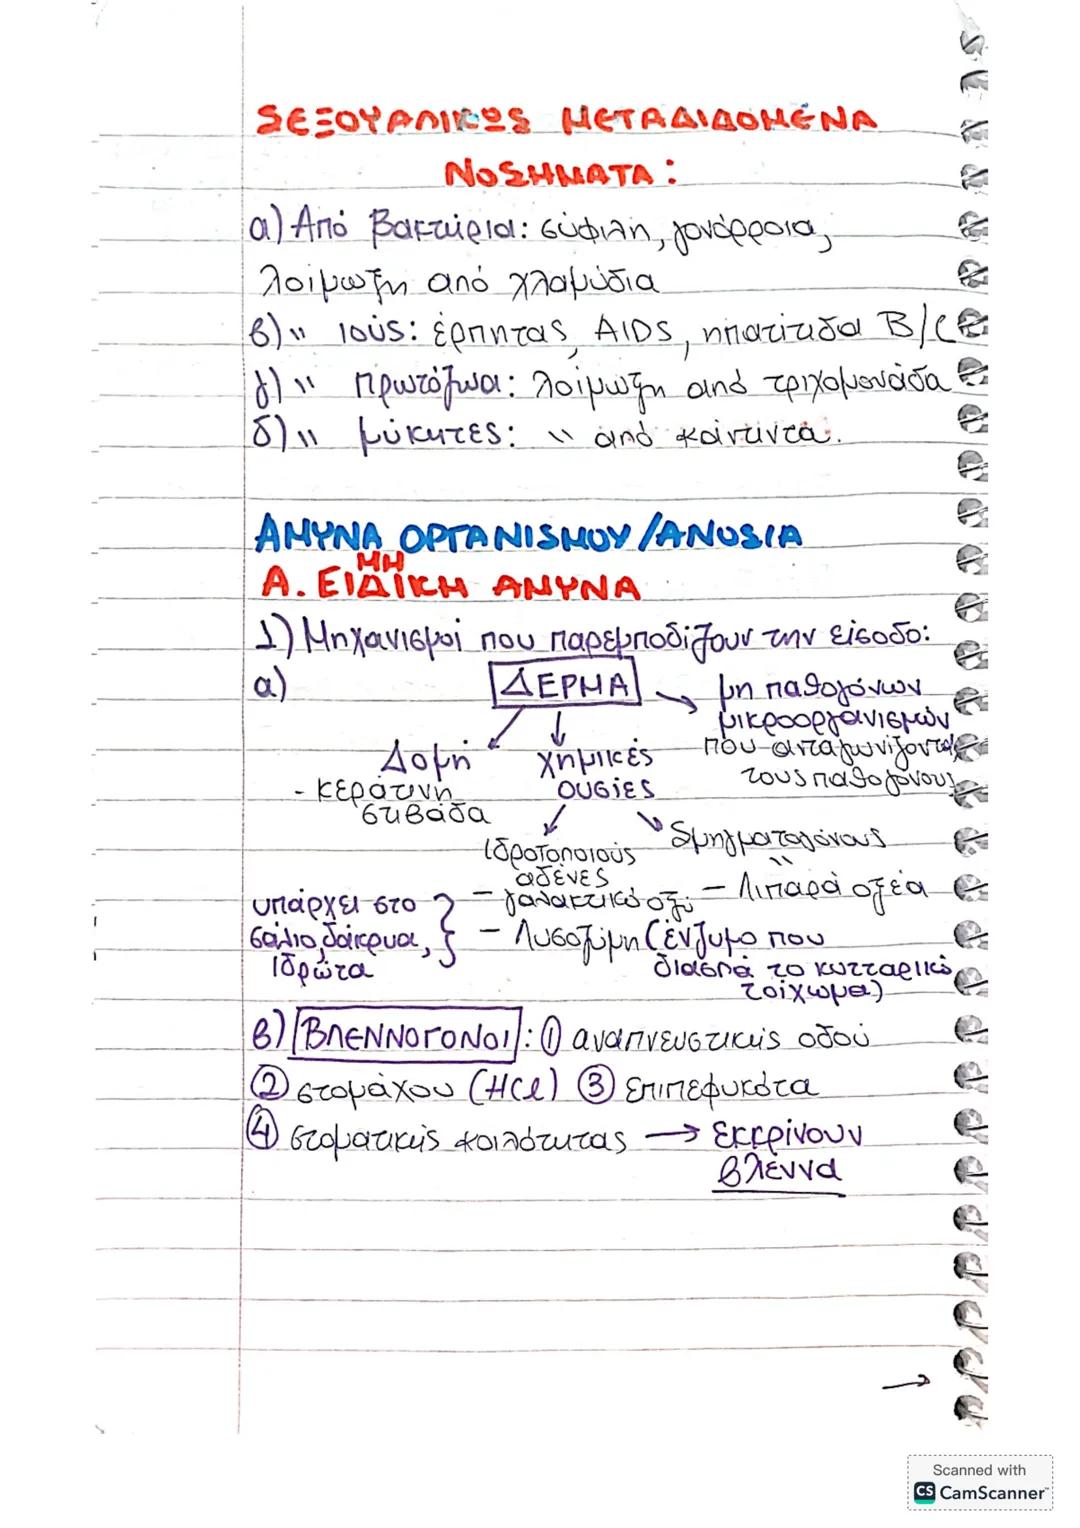 ΣΕΞΟΥΑΛΙΚΩΣ ΜΕΤΑΔΙΔΟΜΕΝΑ
ΝΟΣΗΜΑΤΑ:
α) Από βακτήρια: σύφιλη, γονόρροια,
λοίμωξη από χλαμύδια
β) " ιούς: έρπητας, AIDS, ηπατίτιδα Β/C
γ) " πρωτόζωα: λοίμωξη από τριχομονάδα
δ) " μύκητες: " από κάντιντα.
ΑΜΥΝΑ ΟΡΓΑΝΙΣΜΟΥ/ΑΝΟΣΙΑ
ΜΗ
Α. ΕΙΔΙΚΗ ΑΜΥΝΑ
1) Μηχανισμοί που παρεμποδίζουν την είσοδο:
α) ΔΕΡΜΑ → μη παθογόνων
μικροοργανισμών
που ανταγωνίζονται
τους παθογόνους
Δομή
- κεράτινη
στιβάδα
χημικές
ουσίες
ιδροτοποιούς
αδένες
- γαλακτικό οξύ
σμηγματογόνους
"
- λιπαρά οξέα
υπάρχει στο
σάλιο, δάκρυα,
ιδρώτα
- Λυσοζύμη (ένζυμο που
διασπά το κυτταρικό
τοίχωμα)
β) ΒΛΕΝΝΟΓΟΝΟΙ: ① αναπνευστικής οδού
② στομάχου (HCl) ③ επιπεφυκότα
④ στοματικής κοιλότητας → εκκρίνουν
βλέννα
→
Scanned with
CS CamScanner™